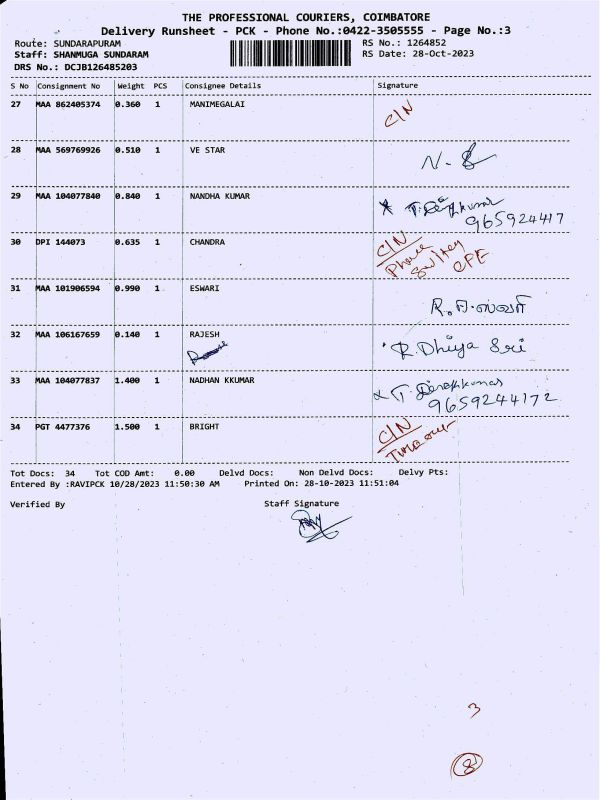 THE PROFESSIONAL COURIERS, COIMBATORE
Delivery Runsheet - PCK - Phone No.:0422-3505555 - Page No.:3
Route: SUNDARAPURAM RS No.: 1264852
Staff: SHANMUGA SUNDARAM RS Date: 28-Oct-2023
DRS No.: DCJB126485203
S No Consignment No Weight PCS Consignee Details Signature
27 MAA 862405374 0.360 1 MANIMEGALAI C/N
28 MAA 569769926 0.510 1 VE STAR
29 MAA 104077840 0.840 1 NANDHA KUMAR
965924417
30 DPI 144073 0.635 1 CHANDRA C/N
Phone
31 MAA 101906594 0.990 1 ESWARI
R. ஈஸ்வரி
32 MAA 106167659 0.140 1 RAJESH R. Dhiya Sri
33 MAA 104077837 1.400 1 NADHAN KKUMAR
9659244172
34 PGT 4477376 1.500 1 BRIGHT C/N
Time over
Tot Docs: 34 Tot COD Amt: 0.00 Delvd Docs: Non Delvd Docs: Delvy Pts:
Entered By :RAVIPCK 10/28/2023 11:50:30 AM Printed On: 28-10-2023 11:51:04
Verified By Staff Signature
3
8